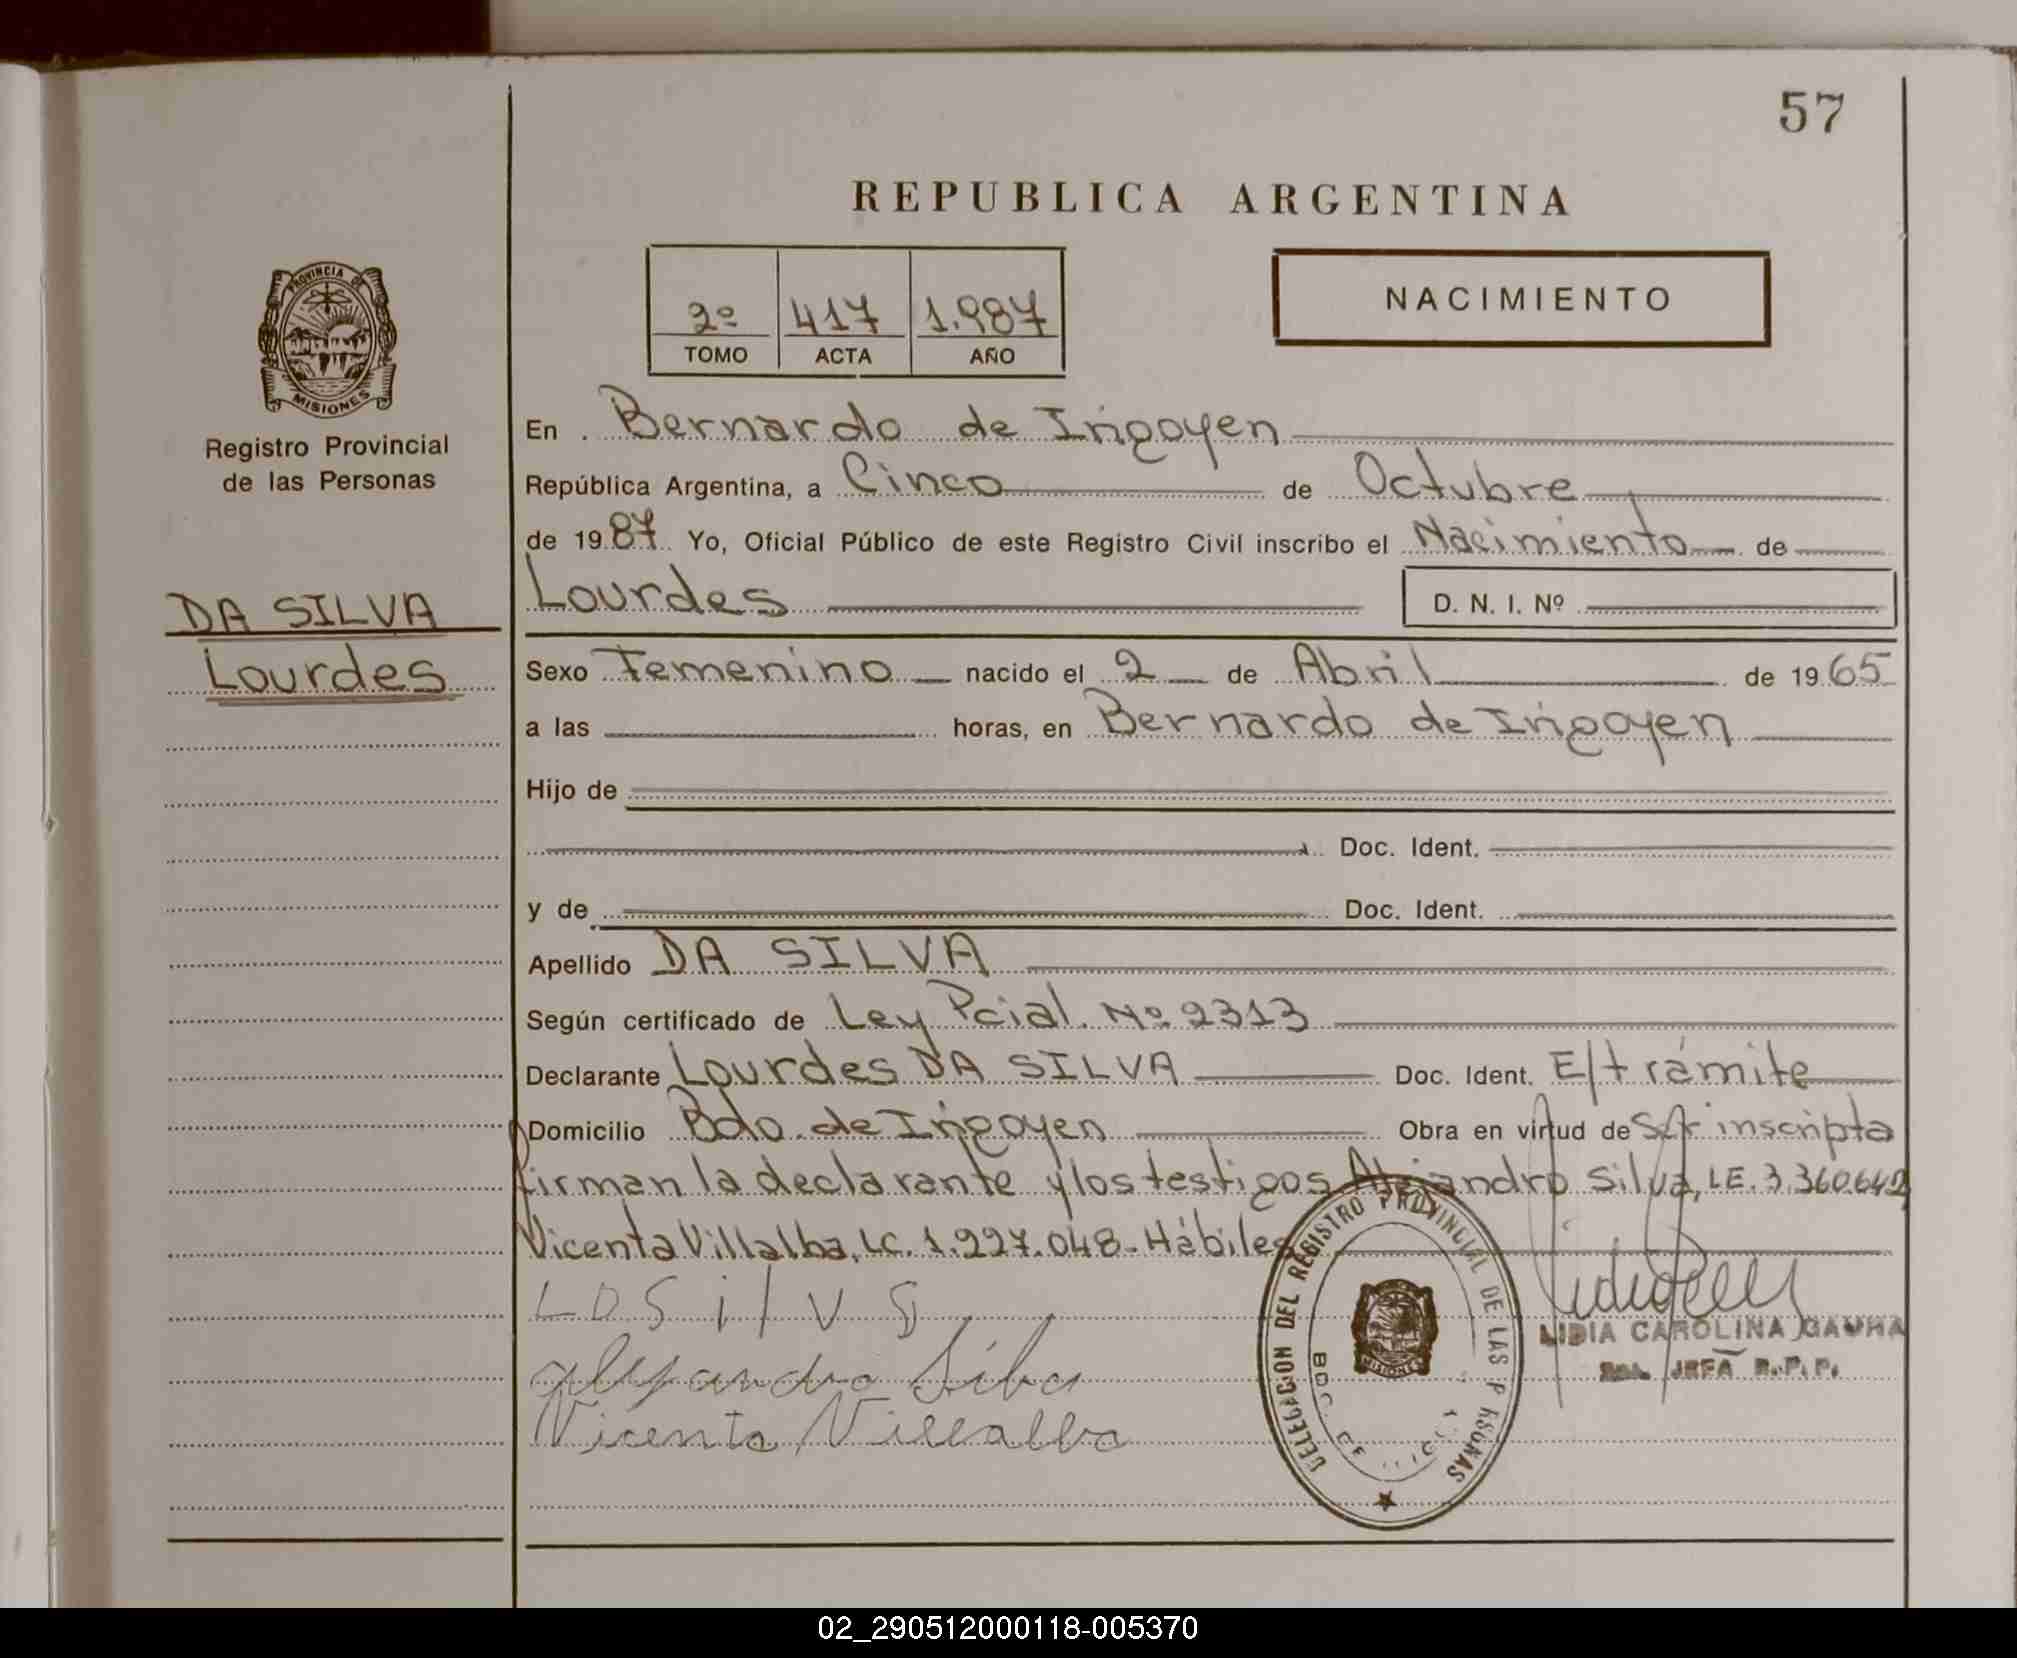 57
REPUBLICA ARGENTINA
PROVINCIA DE
MISIONES
Registro Provincial
de las Personas
2º 417 1.987
TOMO ACTA AÑO
NACIMIENTO
En Bernardo de Irigoyen
República Argentina, a Cinco de Octubre
de 1987 Yo, Oficial Público de este Registro Civil inscribo el Nacimiento de
Lourdes D. N. I. Nº
DA SILVA
Lourdes
Sexo Femenino nacido el 2 de Abril de 1965
a las horas, en Bernardo de Irigoyen
Hijo de
Doc. Ident.
y de Doc. Ident.
Apellido DA SILVA
Según certificado de Ley Pcial. Nº 2313
Declarante Lourdes DA SILVA Doc. Ident. E/trámite
Domicilio Bdo. de Irigoyen Obra en virtud de Ser inscripta
firman la declarante y los testigos Alejandro Silva, LE. 3.360.642,
Vicenta Villalba, LC. 1.227.048- Hábiles
L D S i l v
Alejandro Silva
Vicenta Villalba
DELEGACION DEL REGISTRO PROVINCIAL DE LAS PERSONAS
BDO. DE
MISIONES
LIDIA CAROLINA
JEFA R.P.P.
02_290512000118-005370